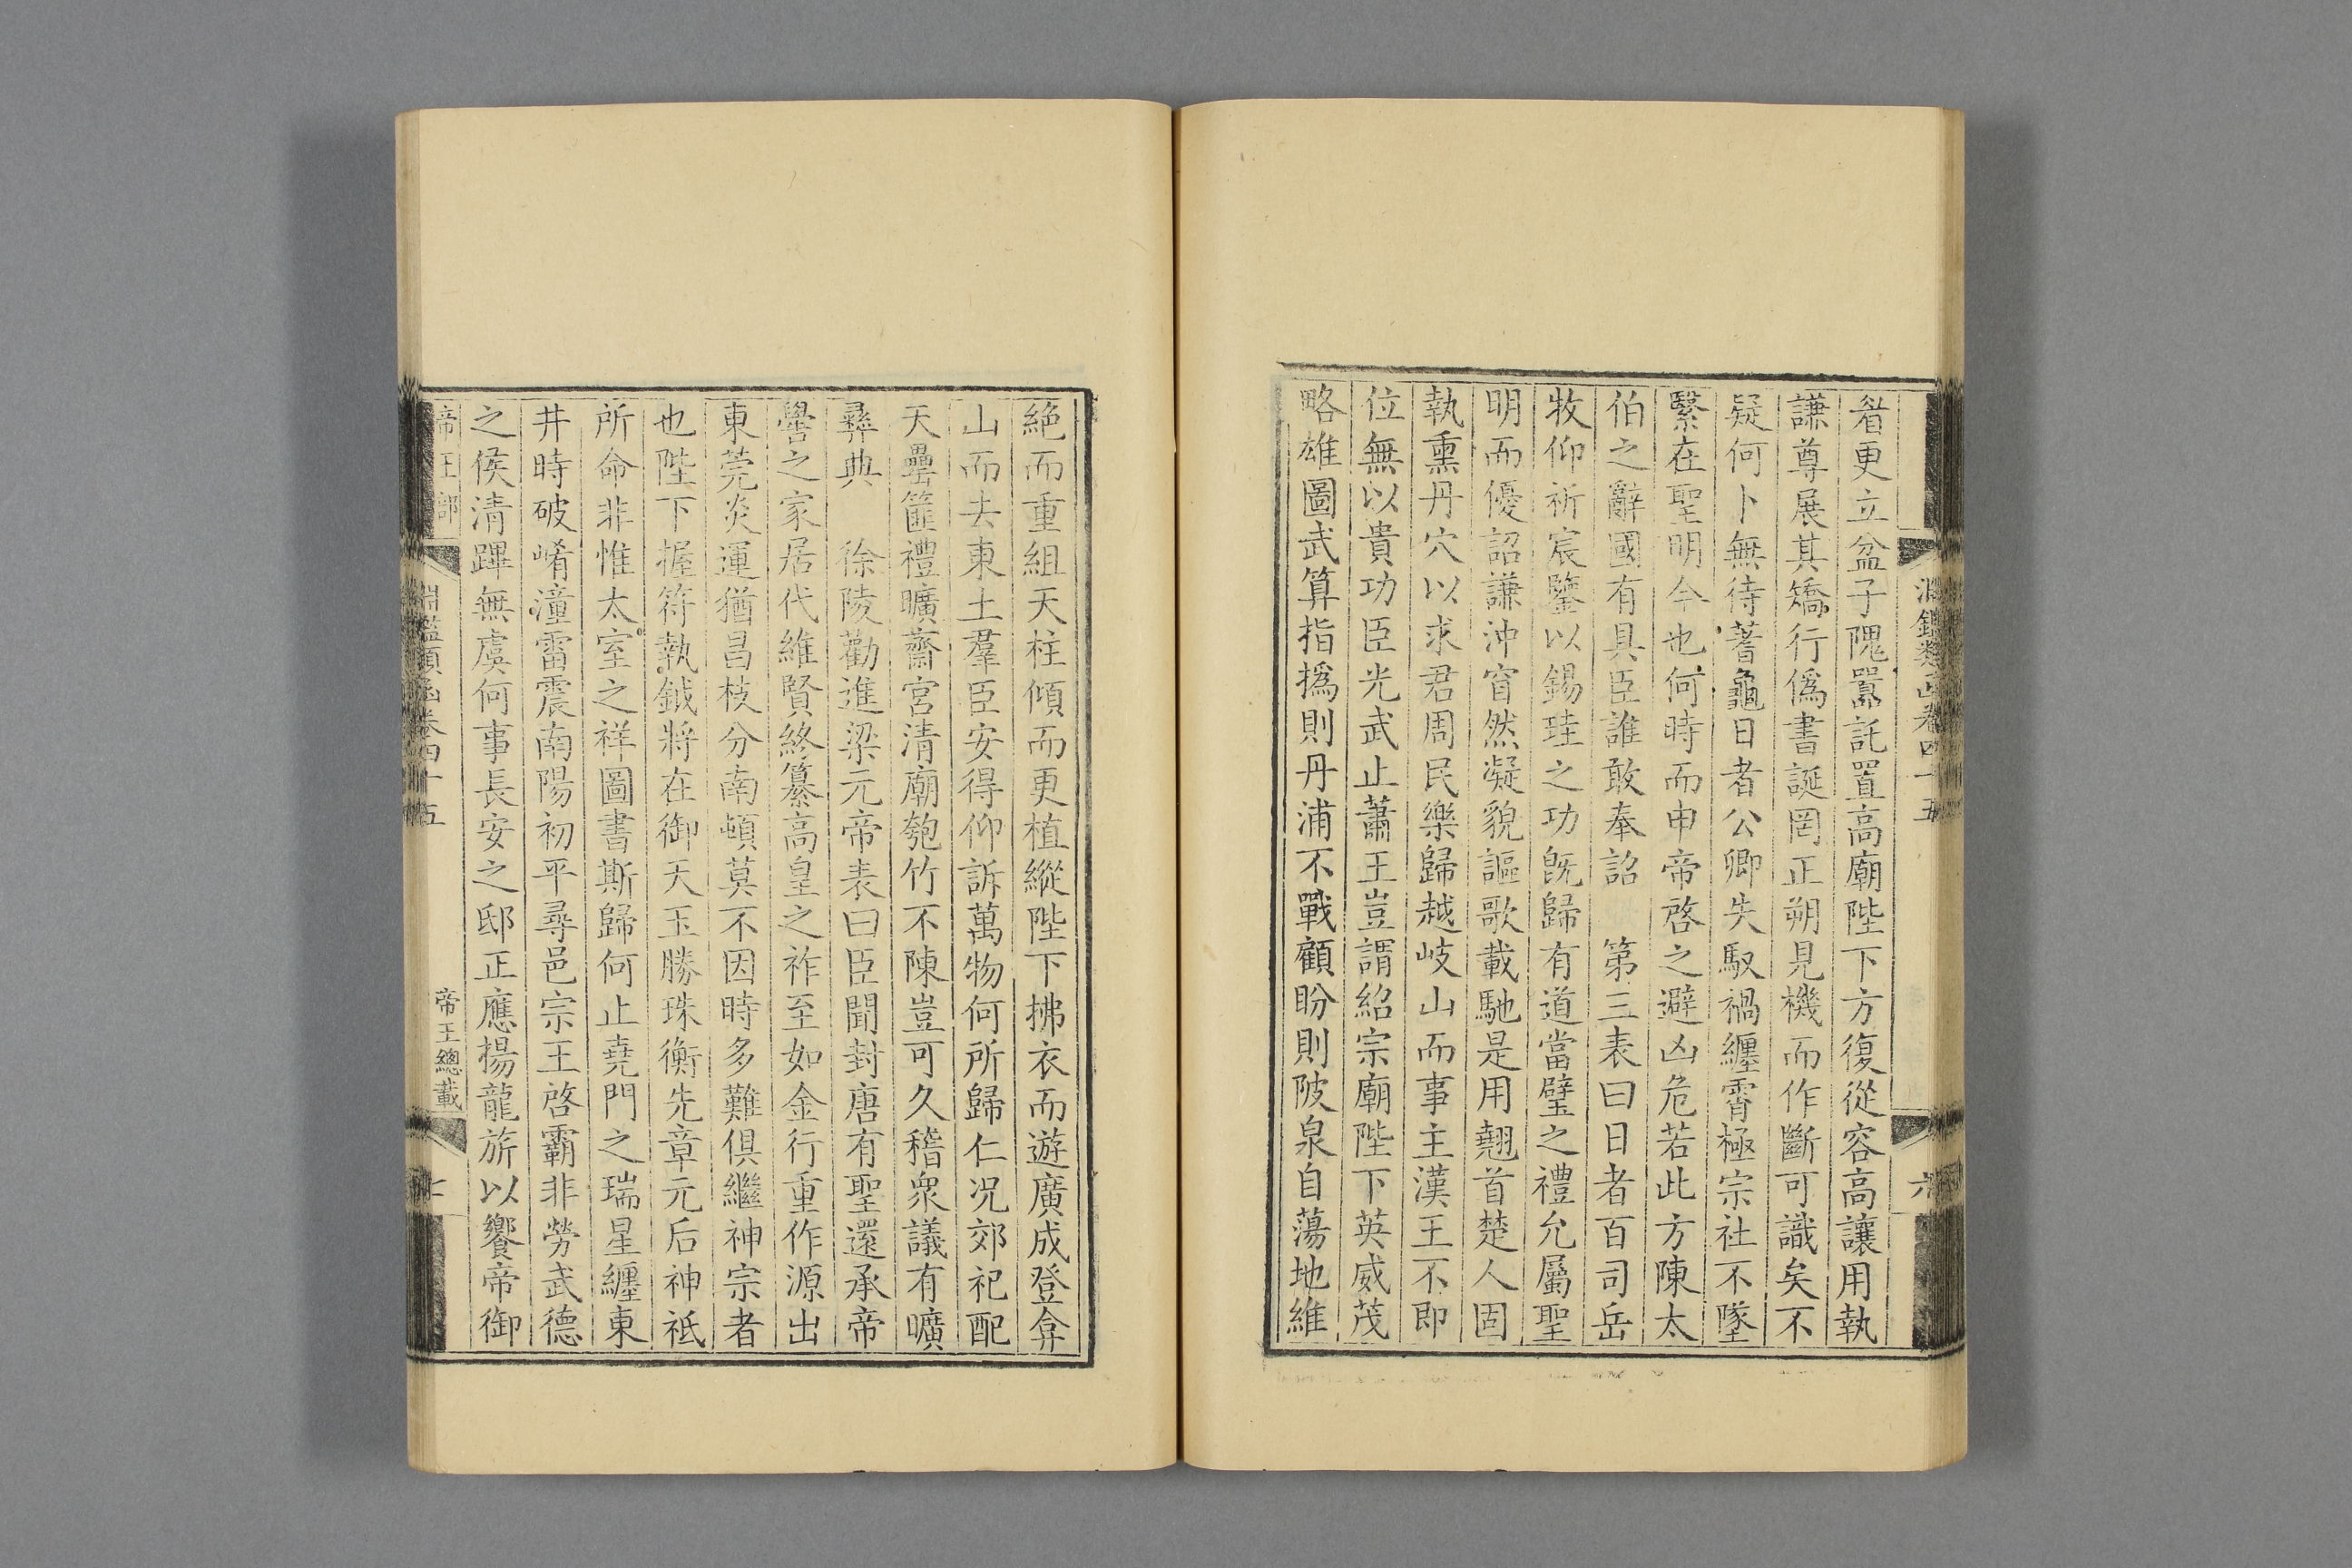 淵鑑類函卷四十五
六
省更立盆子隗囂託置高廟陛下方復從容高讓用執
謙尊展其矯行僞書誕罔正朔見機而作斷可識矣不
疑何卜無待蓍龜日者公卿失馭禍纏霄極宗社不墜
緊在聖明今也何時而申帝啓之避凶危若此方陳太
伯之辭國有具臣誰敢奉詔　第三表曰日者百司岳
牧仰祈宸鑒以錫珪之功旣歸有道當璧之禮允屬聖
明而優詔謙沖窅然凝貌謳歌載馳是用翹首楚人固
執熏丹穴以求君周民樂歸越岐山而事主漢王不即
位無以貴功臣光武止蕭王豈謂紹宗廟陛下英威茂
略雄圖武算指撝則丹浦不戰顧盼則陂泉自蕩地維
絶而重組天柱傾而更植縱陛下拂衣而遊廣成登弇
山而去東土羣臣安得仰訴萬物何所歸仁况郊祀配
天罍篚禮曠齋宮清廟匏竹不陳豈可久稽衆議有曠
彞典　徐陵勸進梁元帝表曰臣聞封唐有聖還承帝
嚳之家居代維賢終纂高皇之祚至如金行重作源出
東莞炎運猶昌枝分南頓莫不因時多難俱繼神宗者
也陛下握符執鉞將在御天玉勝珠衡先章元后神祗
所命非惟太室之祥圖書斯歸何止堯門之瑞星纏東
井時破崤潼雷震南陽初平尋邑宗王啓霸非勞武德
之侯清蹕無虞何事長安之邸正應揚龍旂以饗帝御
帝王部
淵鑑類函卷四十五
帝王總載
七